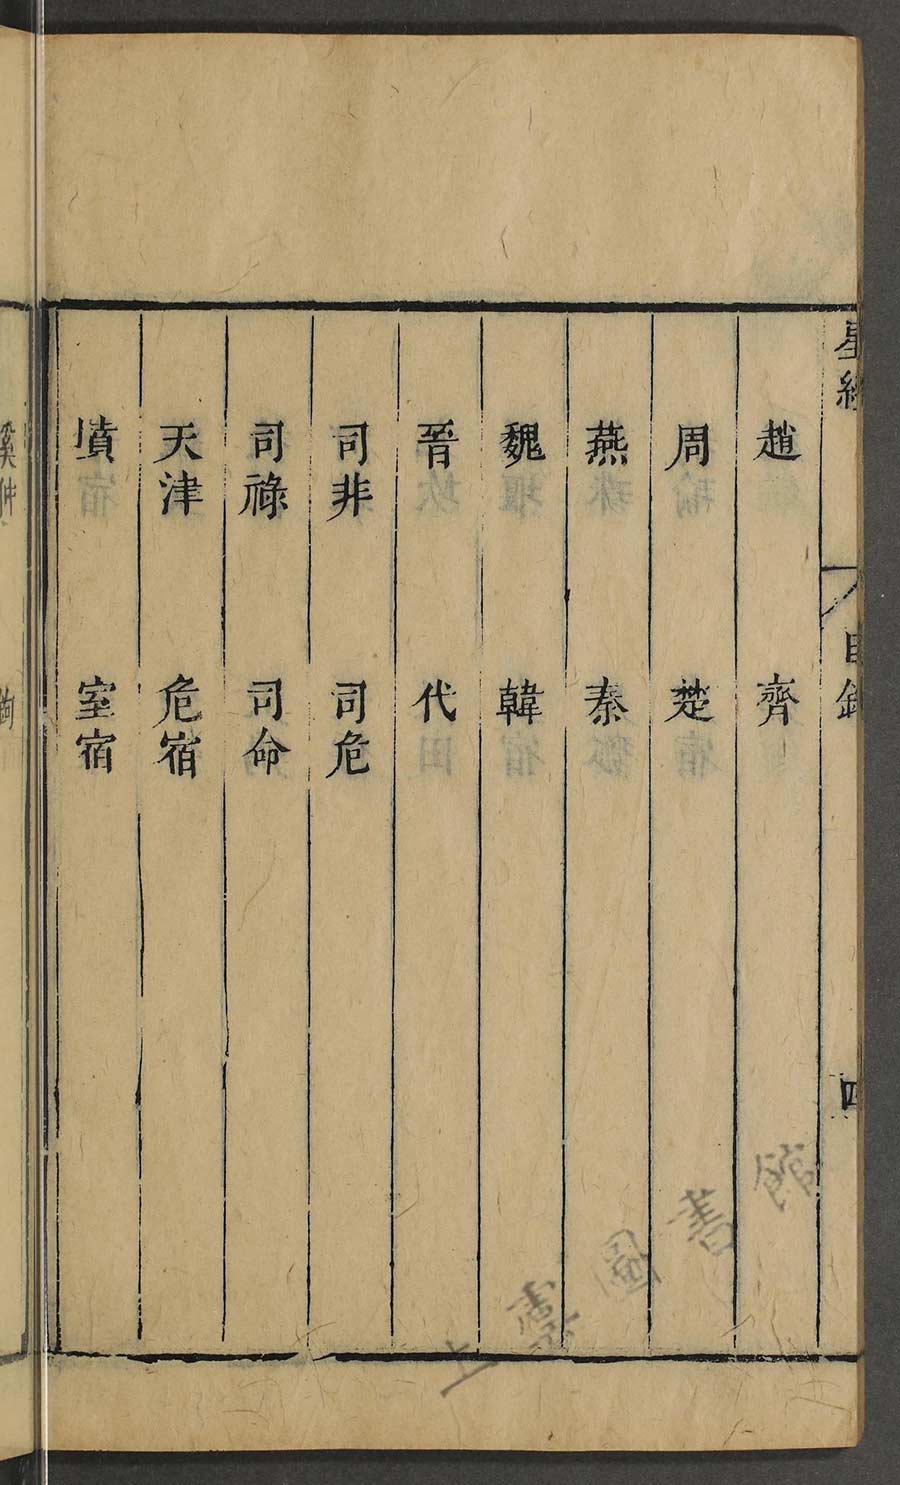 星經
目錄
四
趙 齊
周 楚
燕 秦
魏 韓
晉 代
司非 司危
司祿 司命
天津 危宿
墳 室宿
奚仲